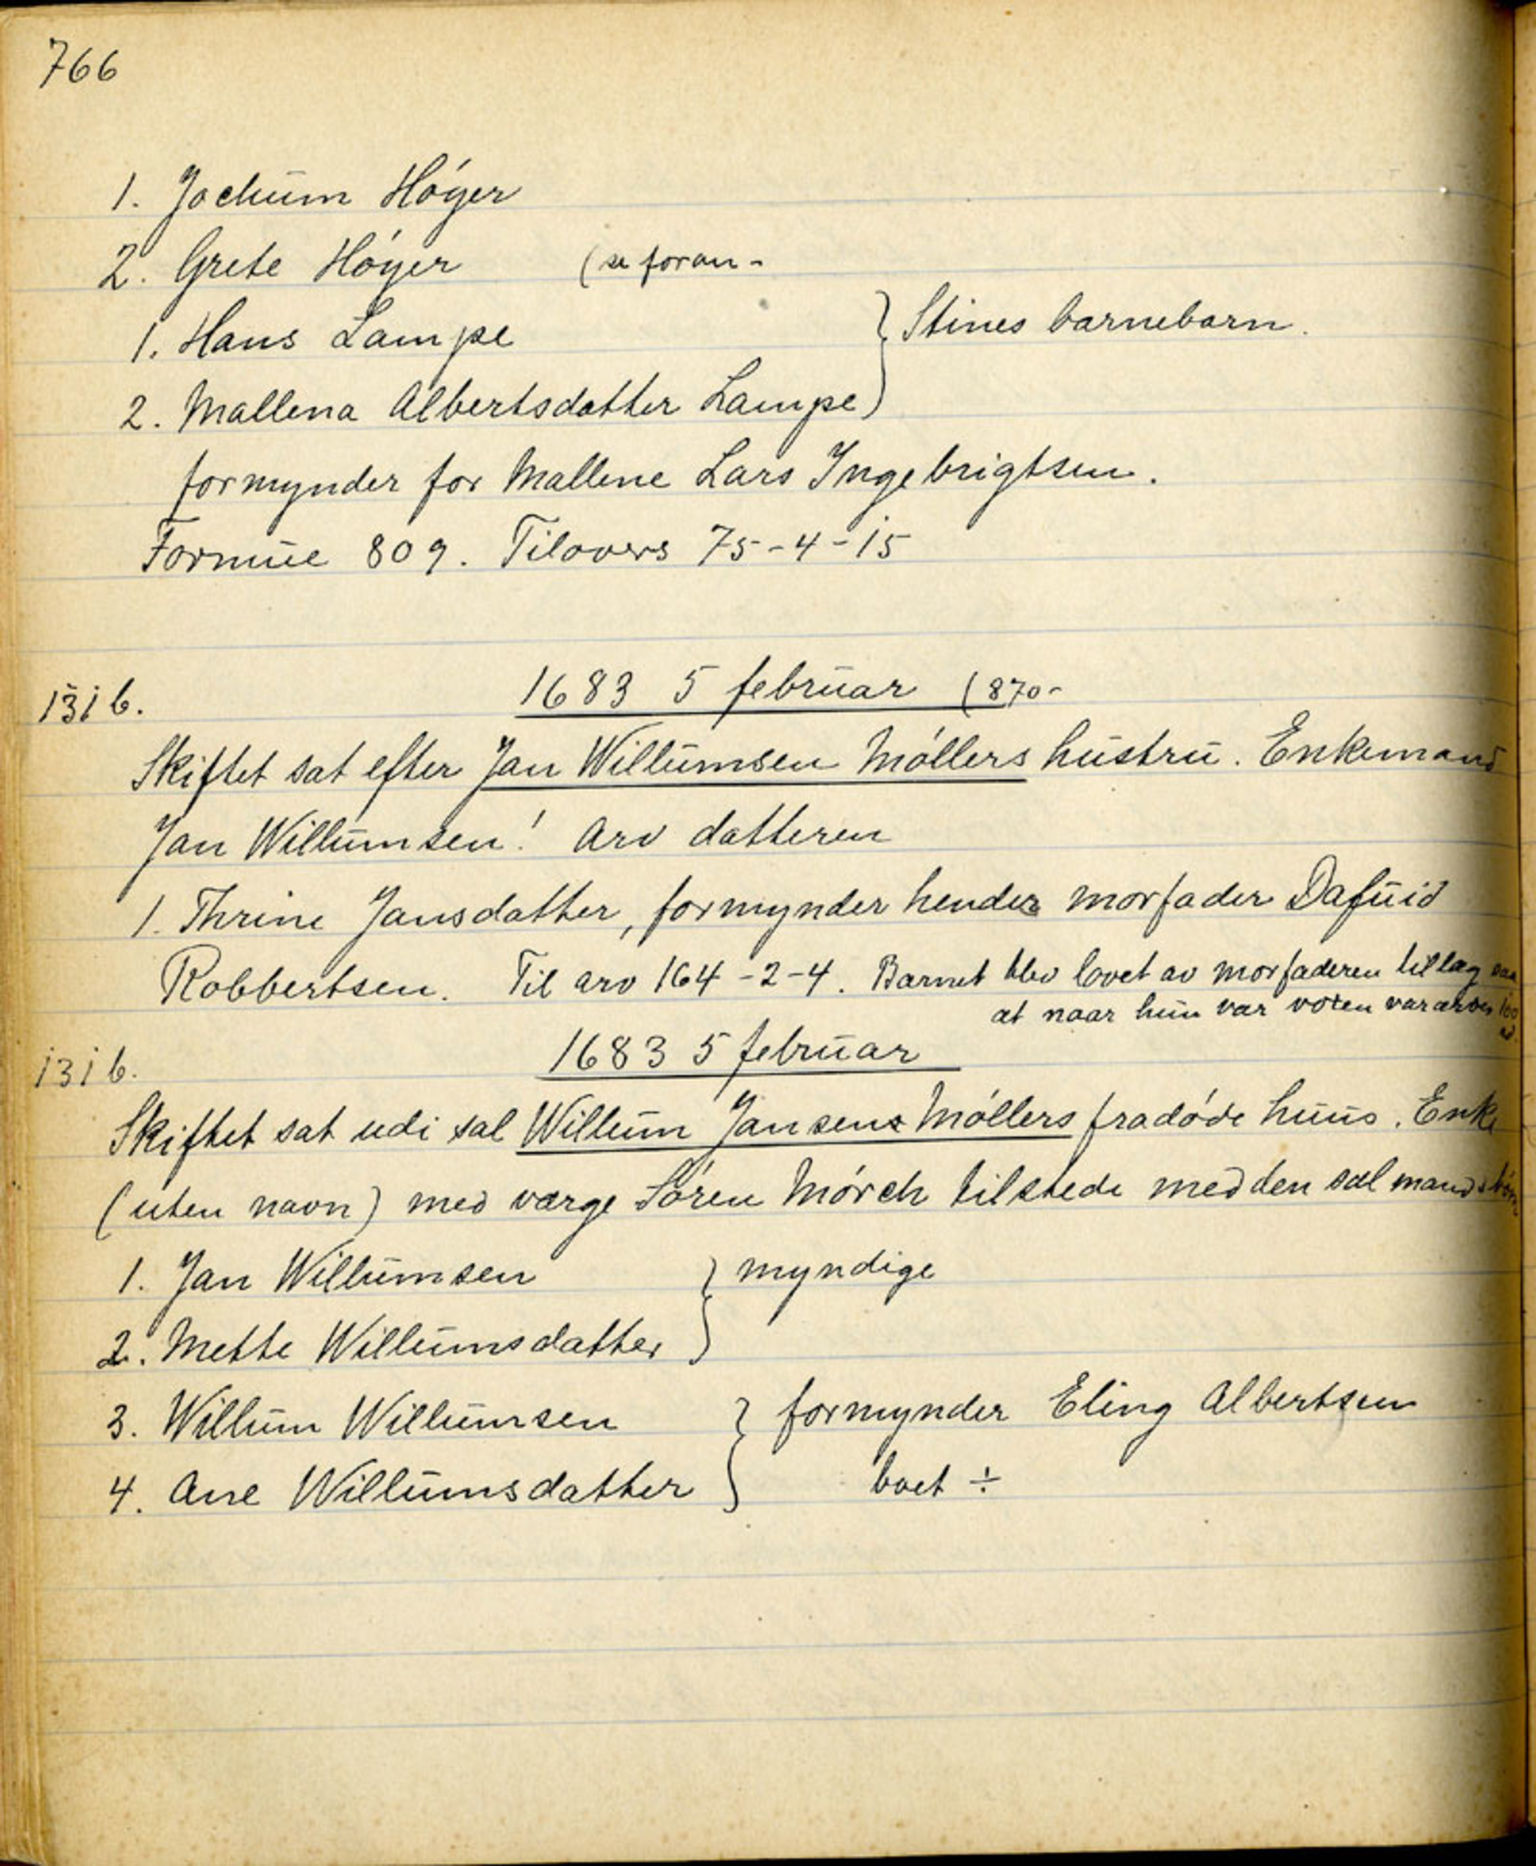 766
1. Jochum Høyer
2. Grete Høyer (se foran -
1. Hans Lampe } Stines barnebarn.
2. Mallena Albertsdatter Lampe }
formynder for Mallene Lars Ingebrigtsen.
Formue 809. Tilovers 75-4-15
131 b. 1683 5 februar (870-
Skiftet sat efter Jan Willumsen Møllers hustru. Enkemand
Jan Willumsen! Arv datteren
1. Thrine Jansdatter, formynder hendes morfader Dafuid
Robbertsen. Til arv 164-2-4. Barnet blev lovet av morfaderen tillæg saa
at naar hun var voxen var arven 100
131 b. 1683 5 februar
Skiftet sat udi sal Willum Jansens Møllers fradøde huus. Enke
(uten navn) med værge Søren Mørch tilstede med den sal mands børn
1. Jan Willumsen } myndige
2. Mette Willumsdatter }
3. Willum Willumsen } formynder Eling Albertsen
4. Ane Willumsdatter } boet ÷